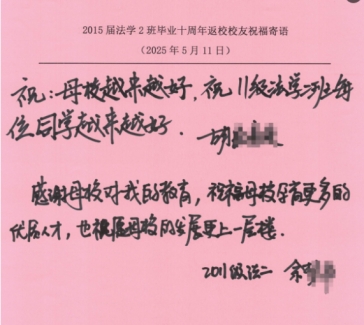 2015届法学2班毕业十周年返校校友祝福寄语
(2025年5月11日)
祝:母校越来越好,祝11级法学二班每
位同学越来越好.
胡
感谢母校对我的教育,祝福母校早有更多的
优秀人才,也祝愿母校的发展更上一层楼.
2011级法二 余